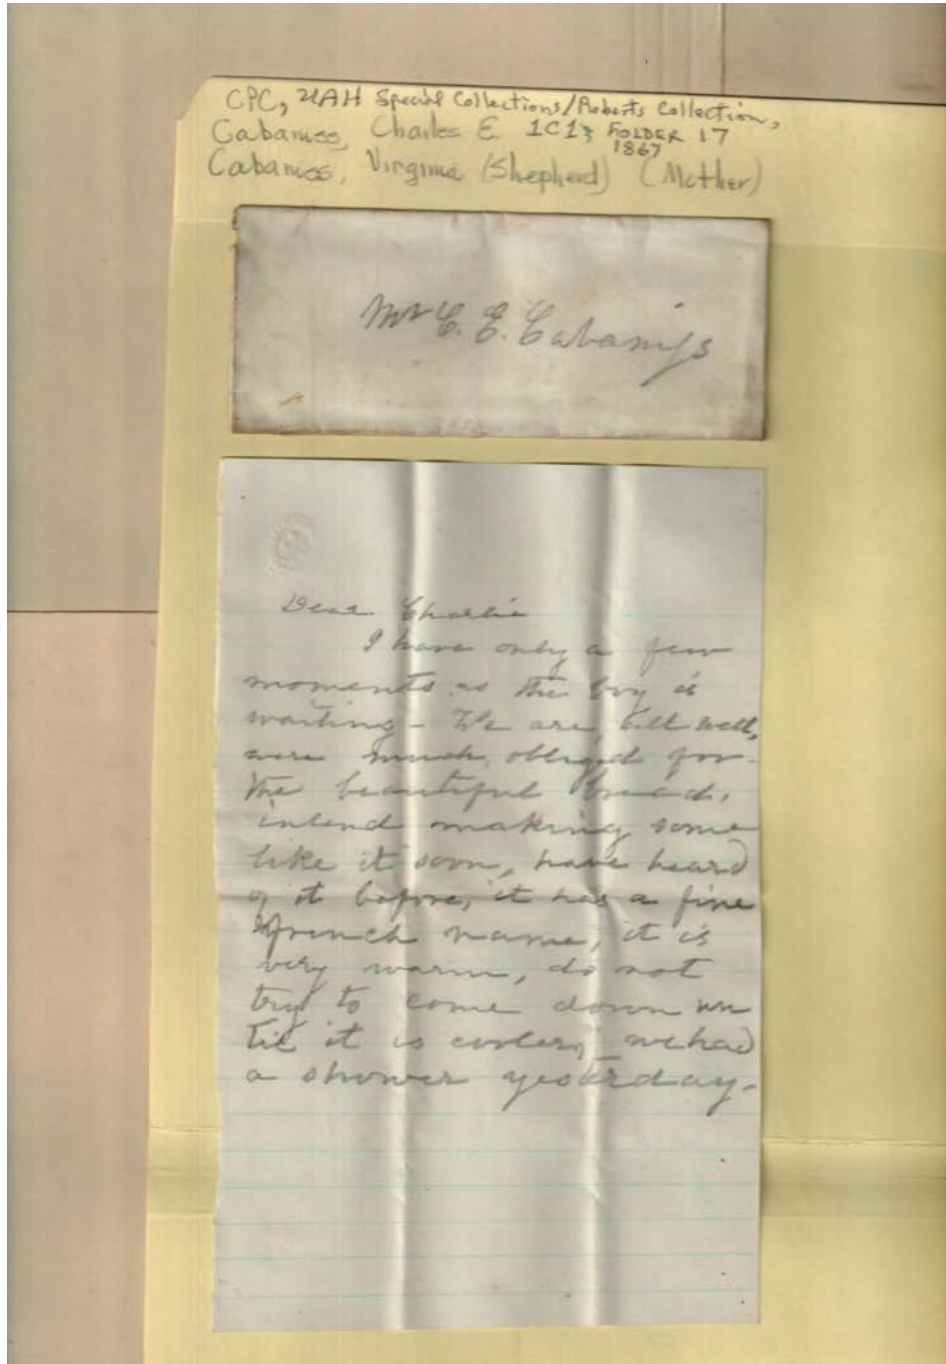 CPC, UAH Special Collections/Roberts Collection,
Cabaniss, Charles E 1C1; FOLDER 17
1867
Cabaniss, Virginia (Shepherd) (Mother)
Mr C. E. Cabaniss
Dear Charlie
I have only a few
moments as the boy is
waiting - We are all well,
were much obliged for
the beautiful bread,
intend making some
like it soon, have heard
of it before, it has a fine
French name, it is
very warm, do not
try to come down un
til it is cooler, we had
a shower yesterday-